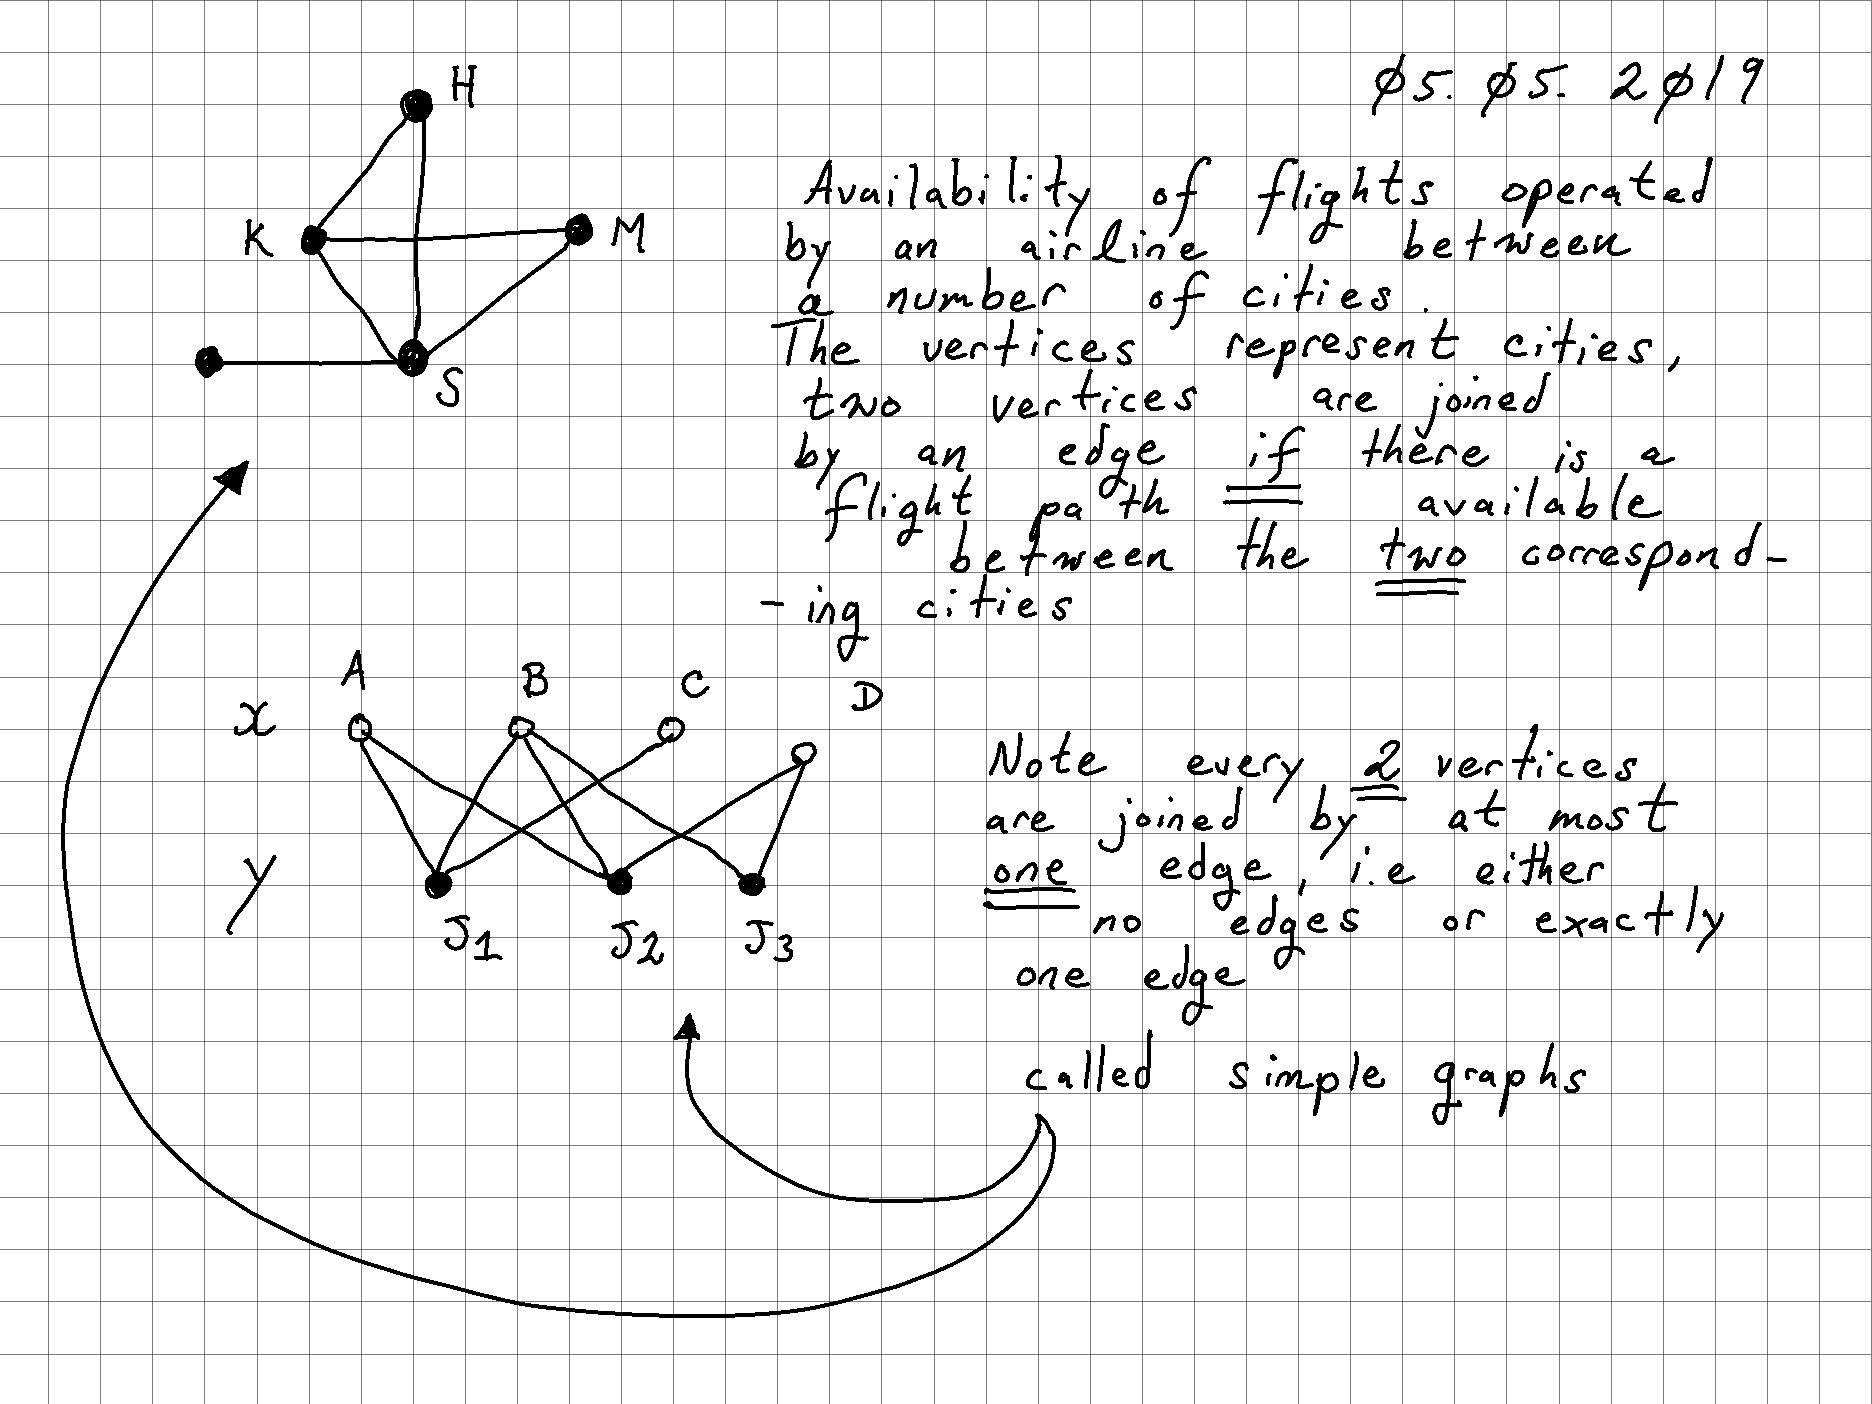 H
K
M
S
ø5. ø5. 2ø19
Availability of flights operated
by an airline between
a number of cities.
The vertices represent cities,
two vertices are joined
by an edge if there is a
flight path available
between the two correspond-
-ing cities
A B C D
x
y
J1 J2 J3
Note every 2 vertices
are joined by at most
one edge, i.e either
no edges or exactly
one edge
called simple graphs